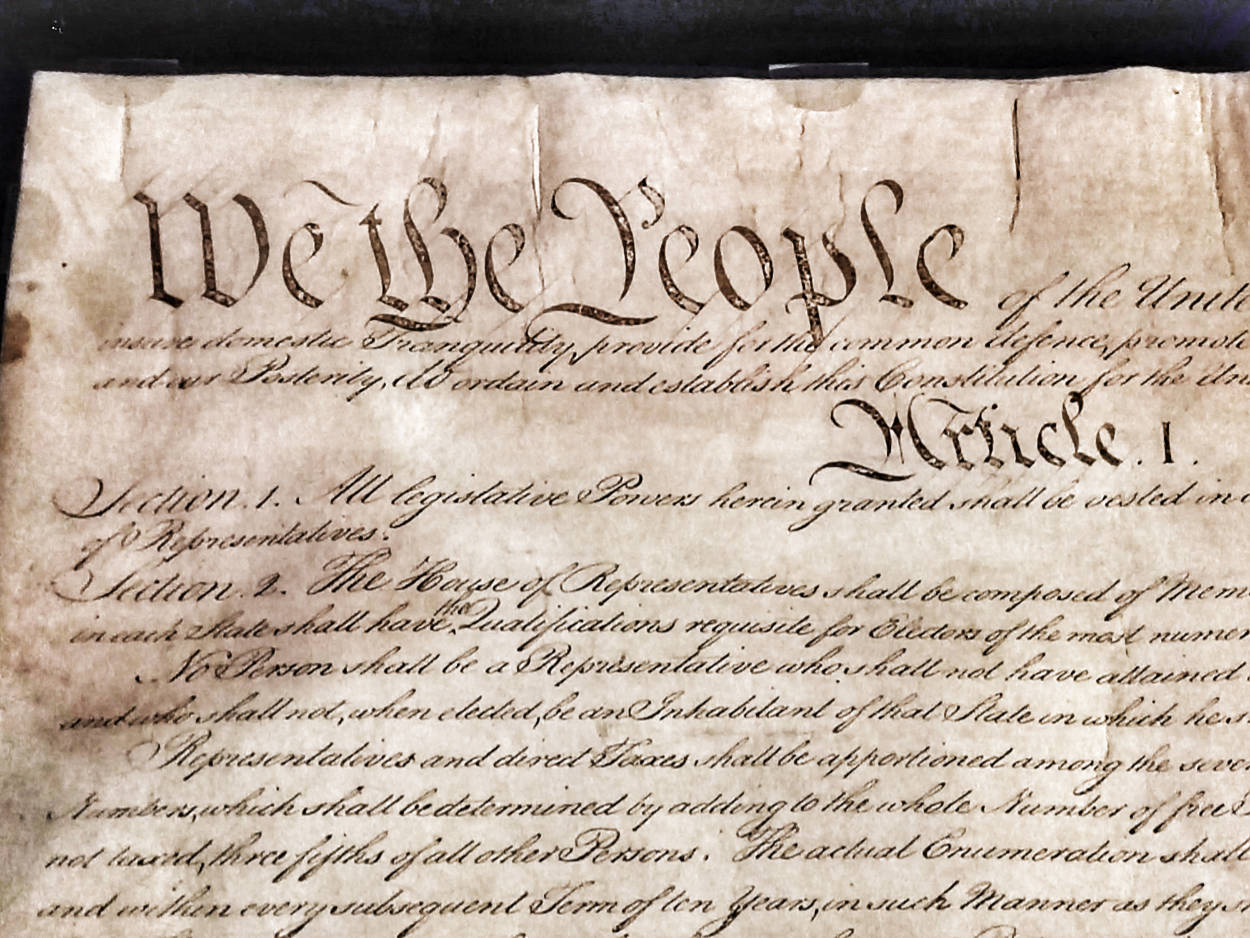 We the People of the Unite
insure domestic Tranquility, provide for the common defence, promote
and our Posterity, do ordain and establish this Constitution for the Un
Article. I.
Section. 1. All legislative Powers herein granted shall be vested in a
of Representatives.
Section. 2. The House of Representatives shall be composed of Mem
the
in each State shall have Qualifications requisite for Electors of the most numer
No Person shall be a Representative who shall not have attained
and who shall not, when elected, be an Inhabitant of that State in which he s
Representatives and direct Taxes shall be apportioned among the seve
Numbers, which shall be determined by adding to the whole Number of free
not taxed, three fifths of all other Persons. The actual Enumeration shall
and within every subsequent Term of ten Years, in such Manner as they s